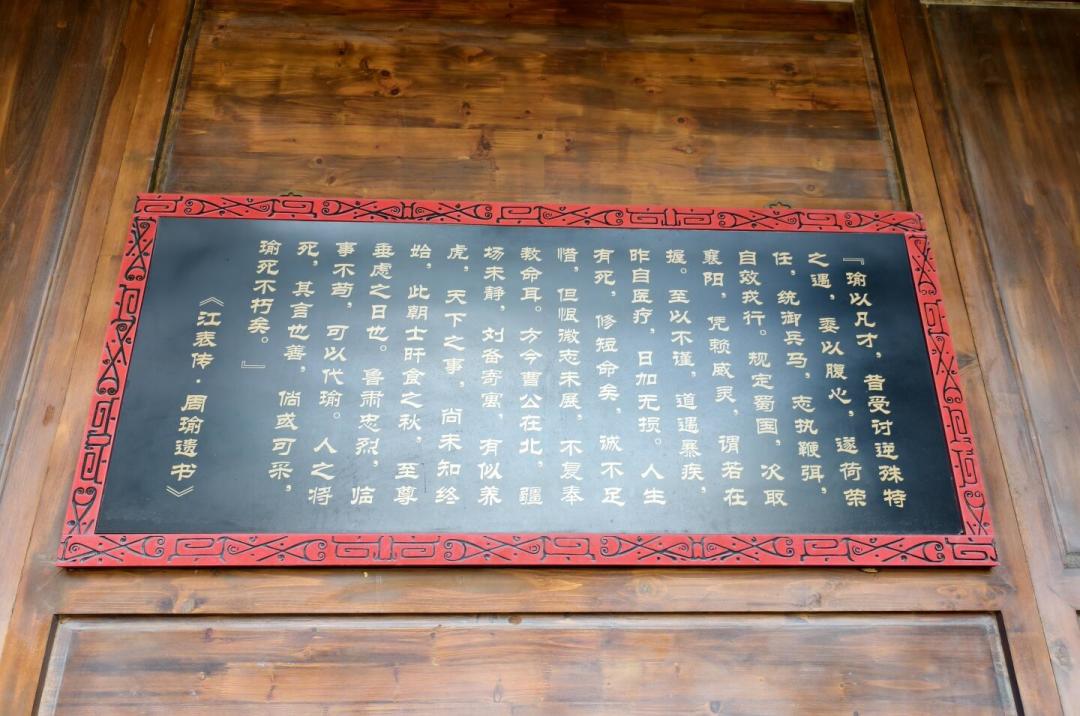 『瑜以凡才，昔受讨逆殊特
之遇，委以腹心，遂荷荣
任，统御兵马，志执鞭弭，
自效戎行。规定蜀国，次取
襄阳，凭赖威灵，谓若在
握。至以不谨，道遇暴疾，
昨自医疗，日加无损。人生
有死，修短命矣，诚不足
惜，但恨微志未展，不复奉
教命耳。方今曹公在北，疆
场未静，刘备寄寓，有似养
虎，天下之事，尚未知终
始，此朝士旰食之秋，至尊
垂虑之日也。鲁肃忠烈，临
事不苟，可以代瑜。人之将
死，其言也善，倘或可采，
瑜死不朽矣。』
《江表传·周瑜遗书》